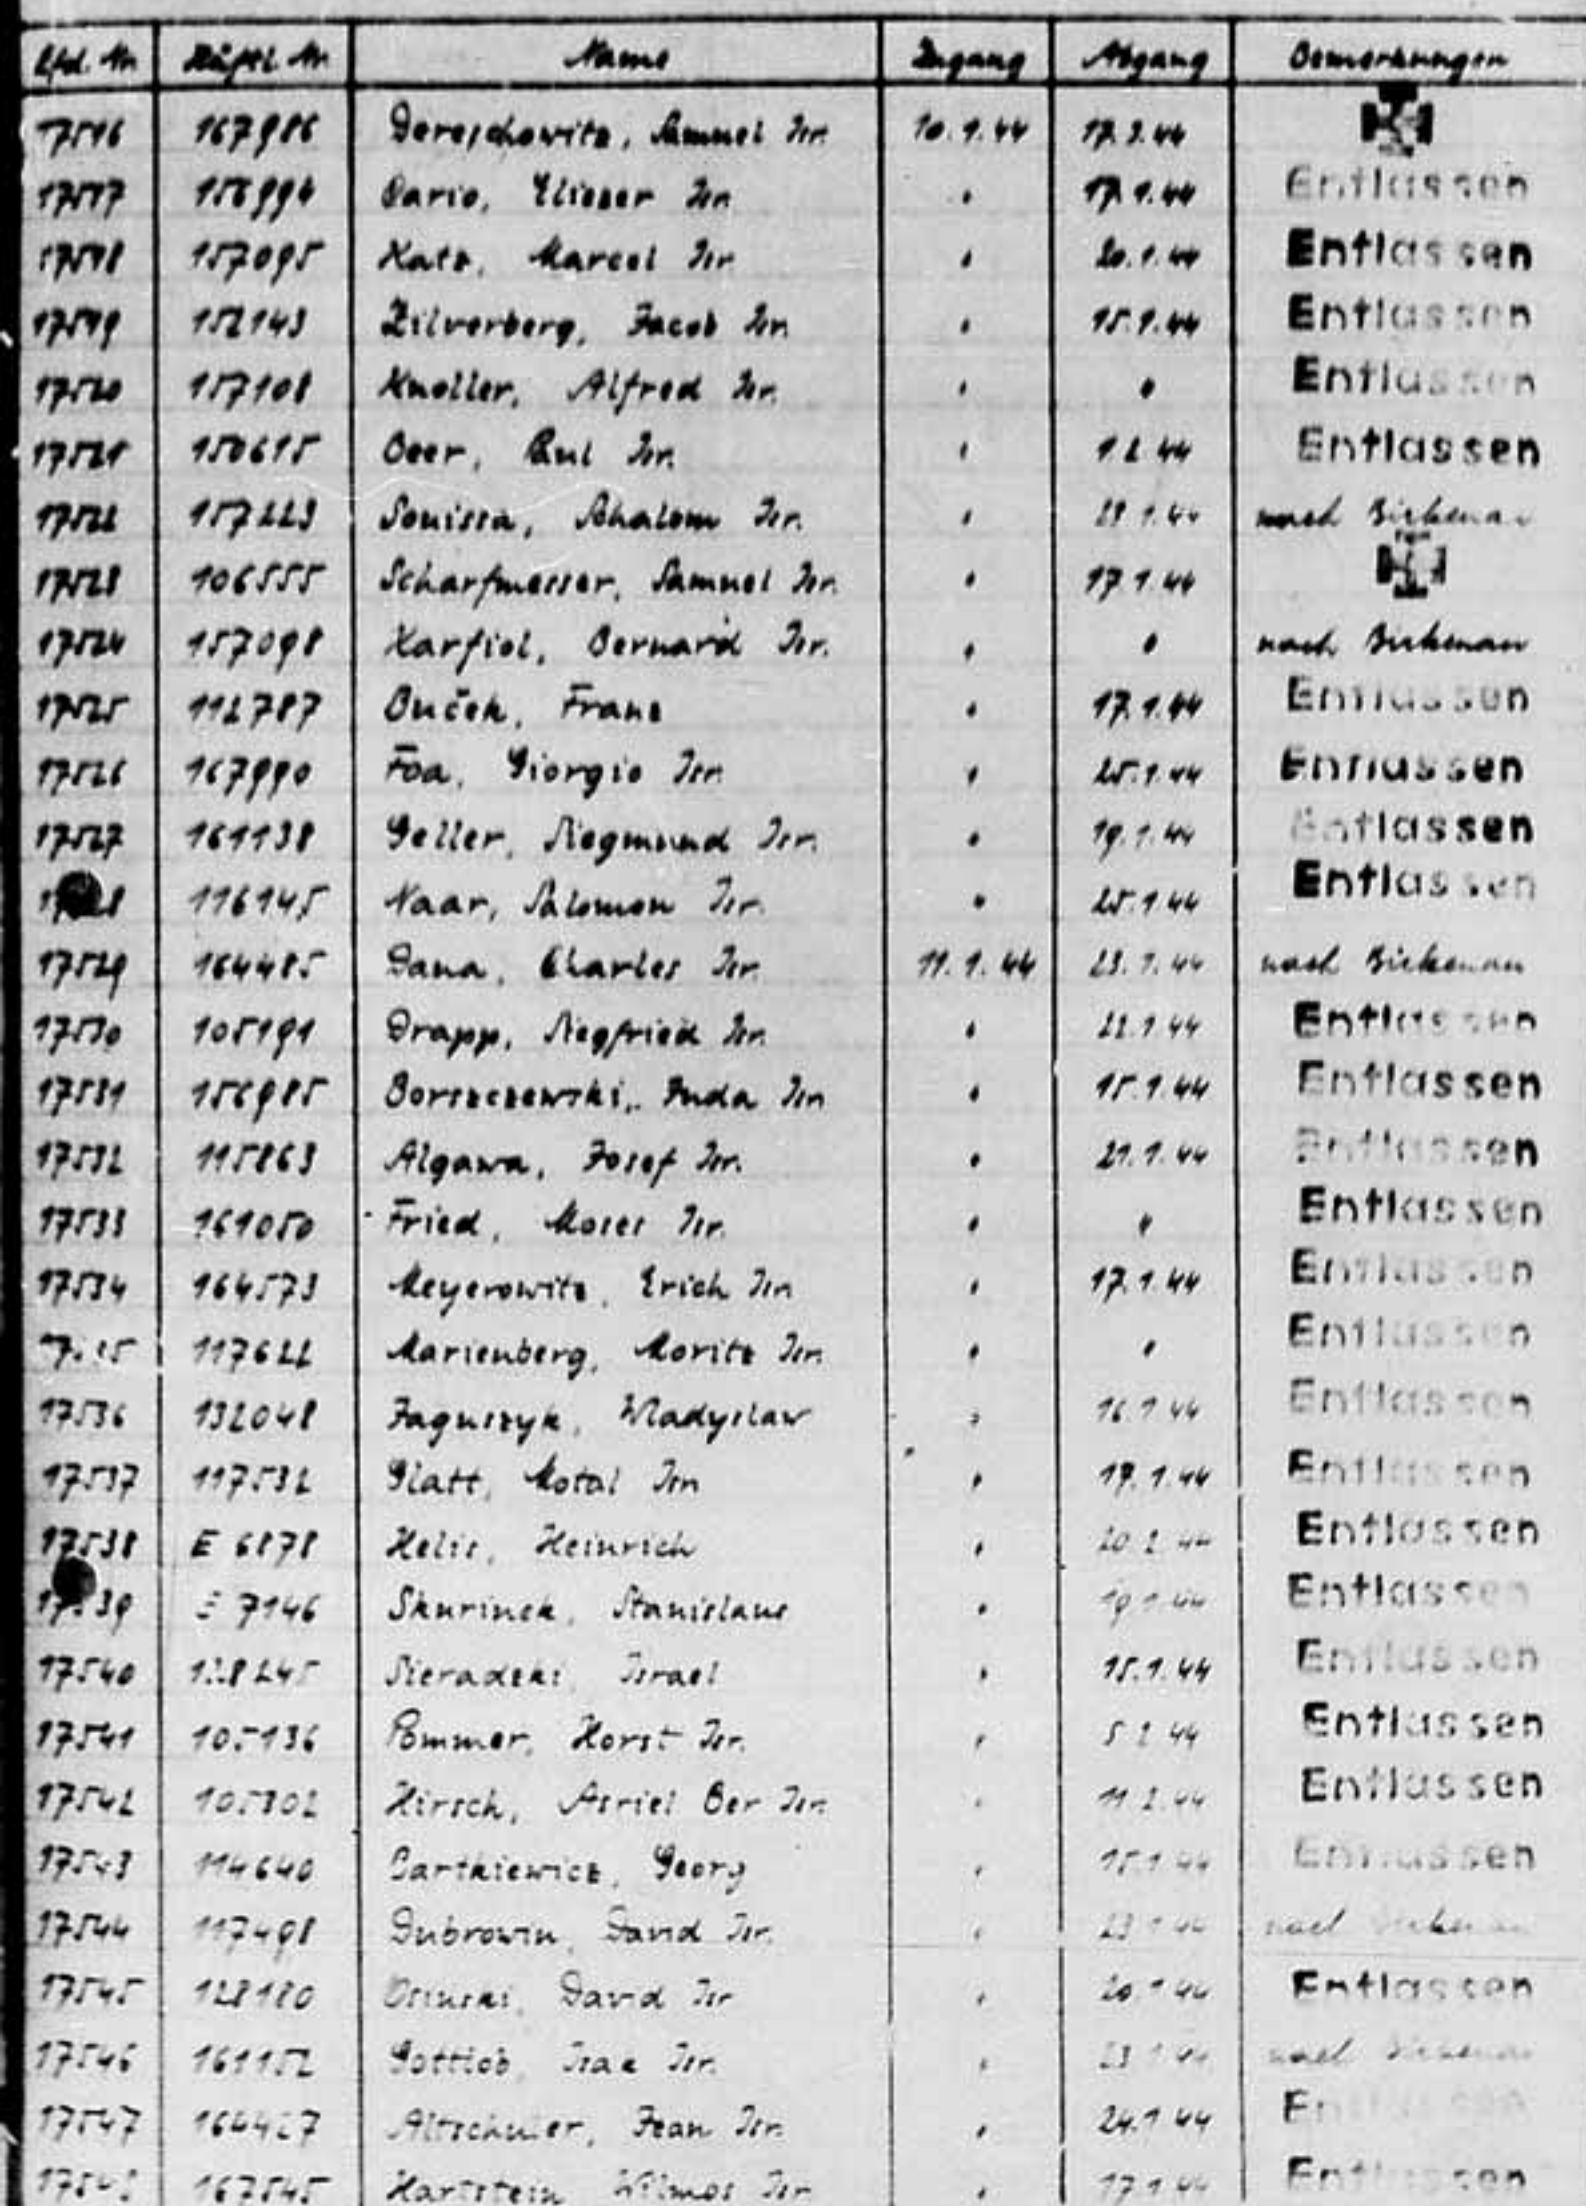 Lfd. Nr. Häftl. Nr. Name Zugang Abgang Bemerkungen
17516 167986 Dereschowitz, Samuel Isr. 10.1.44 17.3.44
17517 156994 Dario, Elieser Isr. " 17.1.44 Entlassen
17518 157095 Katz, Marcel Isr. " 20.1.44 Entlassen
17519 152143 Zilverberg, Jacob Isr. " 15.1.44 Entlassen
17520 157108 Knoller, Alfred Isr. " " Entlassen
17521 150615 Beer, Paul Isr. " 1.2.44 Entlassen
17522 157223 Souissa, Schalom Isr. " 23.1.44 nach Birkenau
17523 106555 Scharfmesser, Samuel Isr. " 17.1.44
17524 157098 Karfiol, Bernard Isr. " " nach Birkenau
17525 112787 Buček, Franz " 17.1.44 Entlassen
17526 167990 Foa, Giorgio Isr. " 25.1.44 Entlassen
17527 161138 Geller, Siegmund Isr. " 19.1.44 Entlassen
17528 116145 Naar, Salomon Isr. " 25.1.44 Entlassen
17529 164485 Dana, Charles Isr. 11.1.44 23.1.44 nach Birkenau
17530 105191 Drapp, Siegfried Isr. " 22.1.44 Entlassen
17531 156985 Borszczewski, Juda Isr. " 15.1.44 Entlassen
17532 115863 Algawa, Josef Isr. " 21.1.44 Entlassen
17533 161050 Fried, Moses Isr. " " Entlassen
17534 164573 Meyerowitz, Erich Isr. " 17.1.44 Entlassen
117622 Marienberg, Moritz Isr. " " Entlassen
17536 132048 Jaguszyk, Wladyslaw " 16.1.44 Entlassen
17537 117532 Glatt, Motal Isr. " 17.1.44 Entlassen
17538 E 6878 Helis, Heinrich " 20.2.44 Entlassen
17539 E 7146 Skurinek, Stanislaus " 19.1.44 Entlassen
17540 128245 Sieradzki, Israel " 15.1.44 Entlassen
17541 105136 Pommer, Horst Isr. " 5.2.44 Entlassen
17542 105302 Hirsch, Asriel Ber Isr. " 11.2.44 Entlassen
17543 114640 Bartkiewicz, Georg " 15.1.44 Entlassen
17544 117498 Dubrowin, David Isr. " 23.1.44 nach Birkenau
17545 128180 Osinski, David Isr. " 20.1.44 Entlassen
17546 161152 Gottlob, Isac Isr. " 23.1.44 nach Birkenau
17547 164427 Altschuler, Jean Isr. " 24.1.44 Entlassen
17548 167545 Hartstein, Wilmos Isr. " 17.1.44 Entlassen